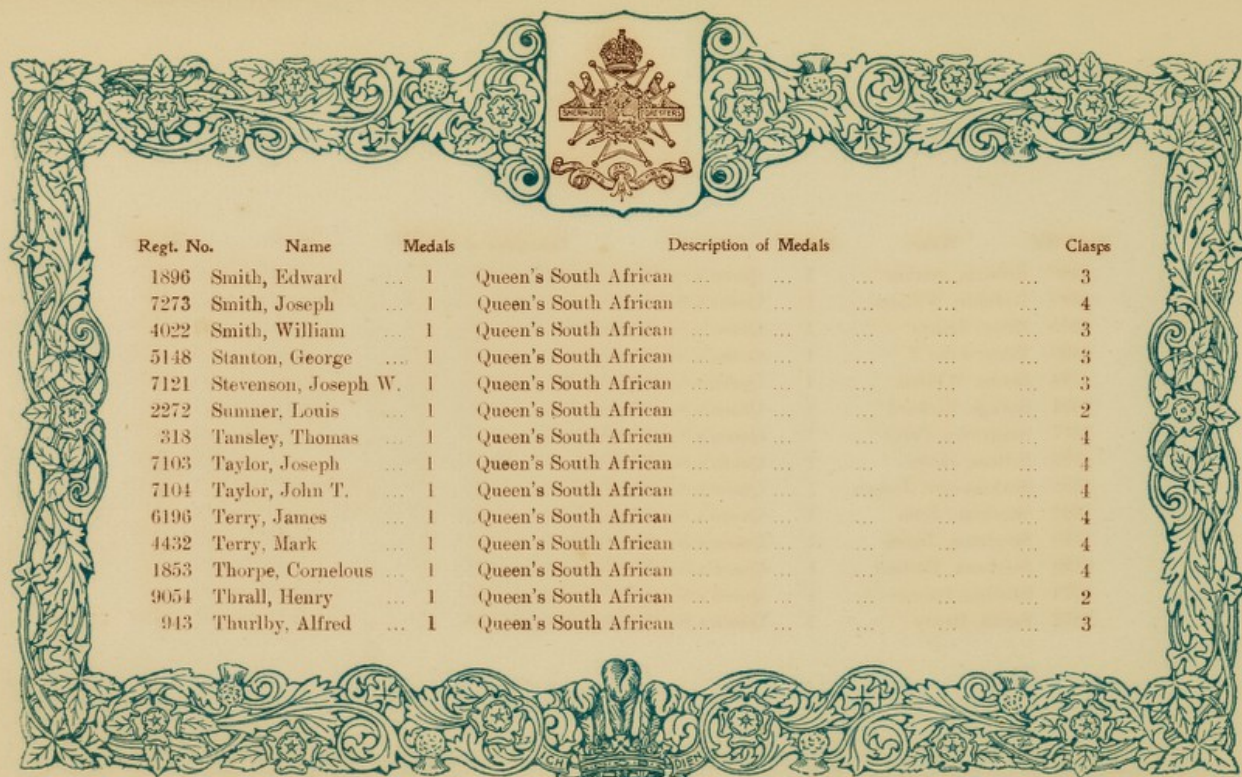 SHERWOOD FORESTERS
Regt. No. Name Medals Description of Medals Clasps
1896 Smith, Edward ... 1 Queen's South African ... ... ... ... ... 3
7273 Smith, Joseph ... 1 Queen's South African ... ... ... ... ... 4
4022 Smith, William ... 1 Queen's South African ... ... ... ... ... 3
5148 Stanton, George ... 1 Queen's South African ... ... ... ... ... 3
7121 Stevenson, Joseph W. 1 Queen's South African ... ... ... ... ... 3
2272 Sumner, Louis ... 1 Queen's South African ... ... ... ... ... 2
318 Tansley, Thomas ... 1 Queen's South African ... ... ... ... ... 4
7103 Taylor, Joseph ... 1 Queen's South African ... ... ... ... ... 4
7104 Taylor, John T. ... 1 Queen's South African ... ... ... ... ... 4
6196 Terry, James ... 1 Queen's South African ... ... ... ... ... 4
4432 Terry, Mark ... 1 Queen's South African ... ... ... ... ... 4
1853 Thorpe, Cornelous ... 1 Queen's South African ... ... ... ... ... 4
9054 Thrall, Henry ... 1 Queen's South African ... ... ... ... ... 2
943 Thurlby, Alfred ... 1 Queen's South African ... ... ... ... ... 3
ICH DIEN